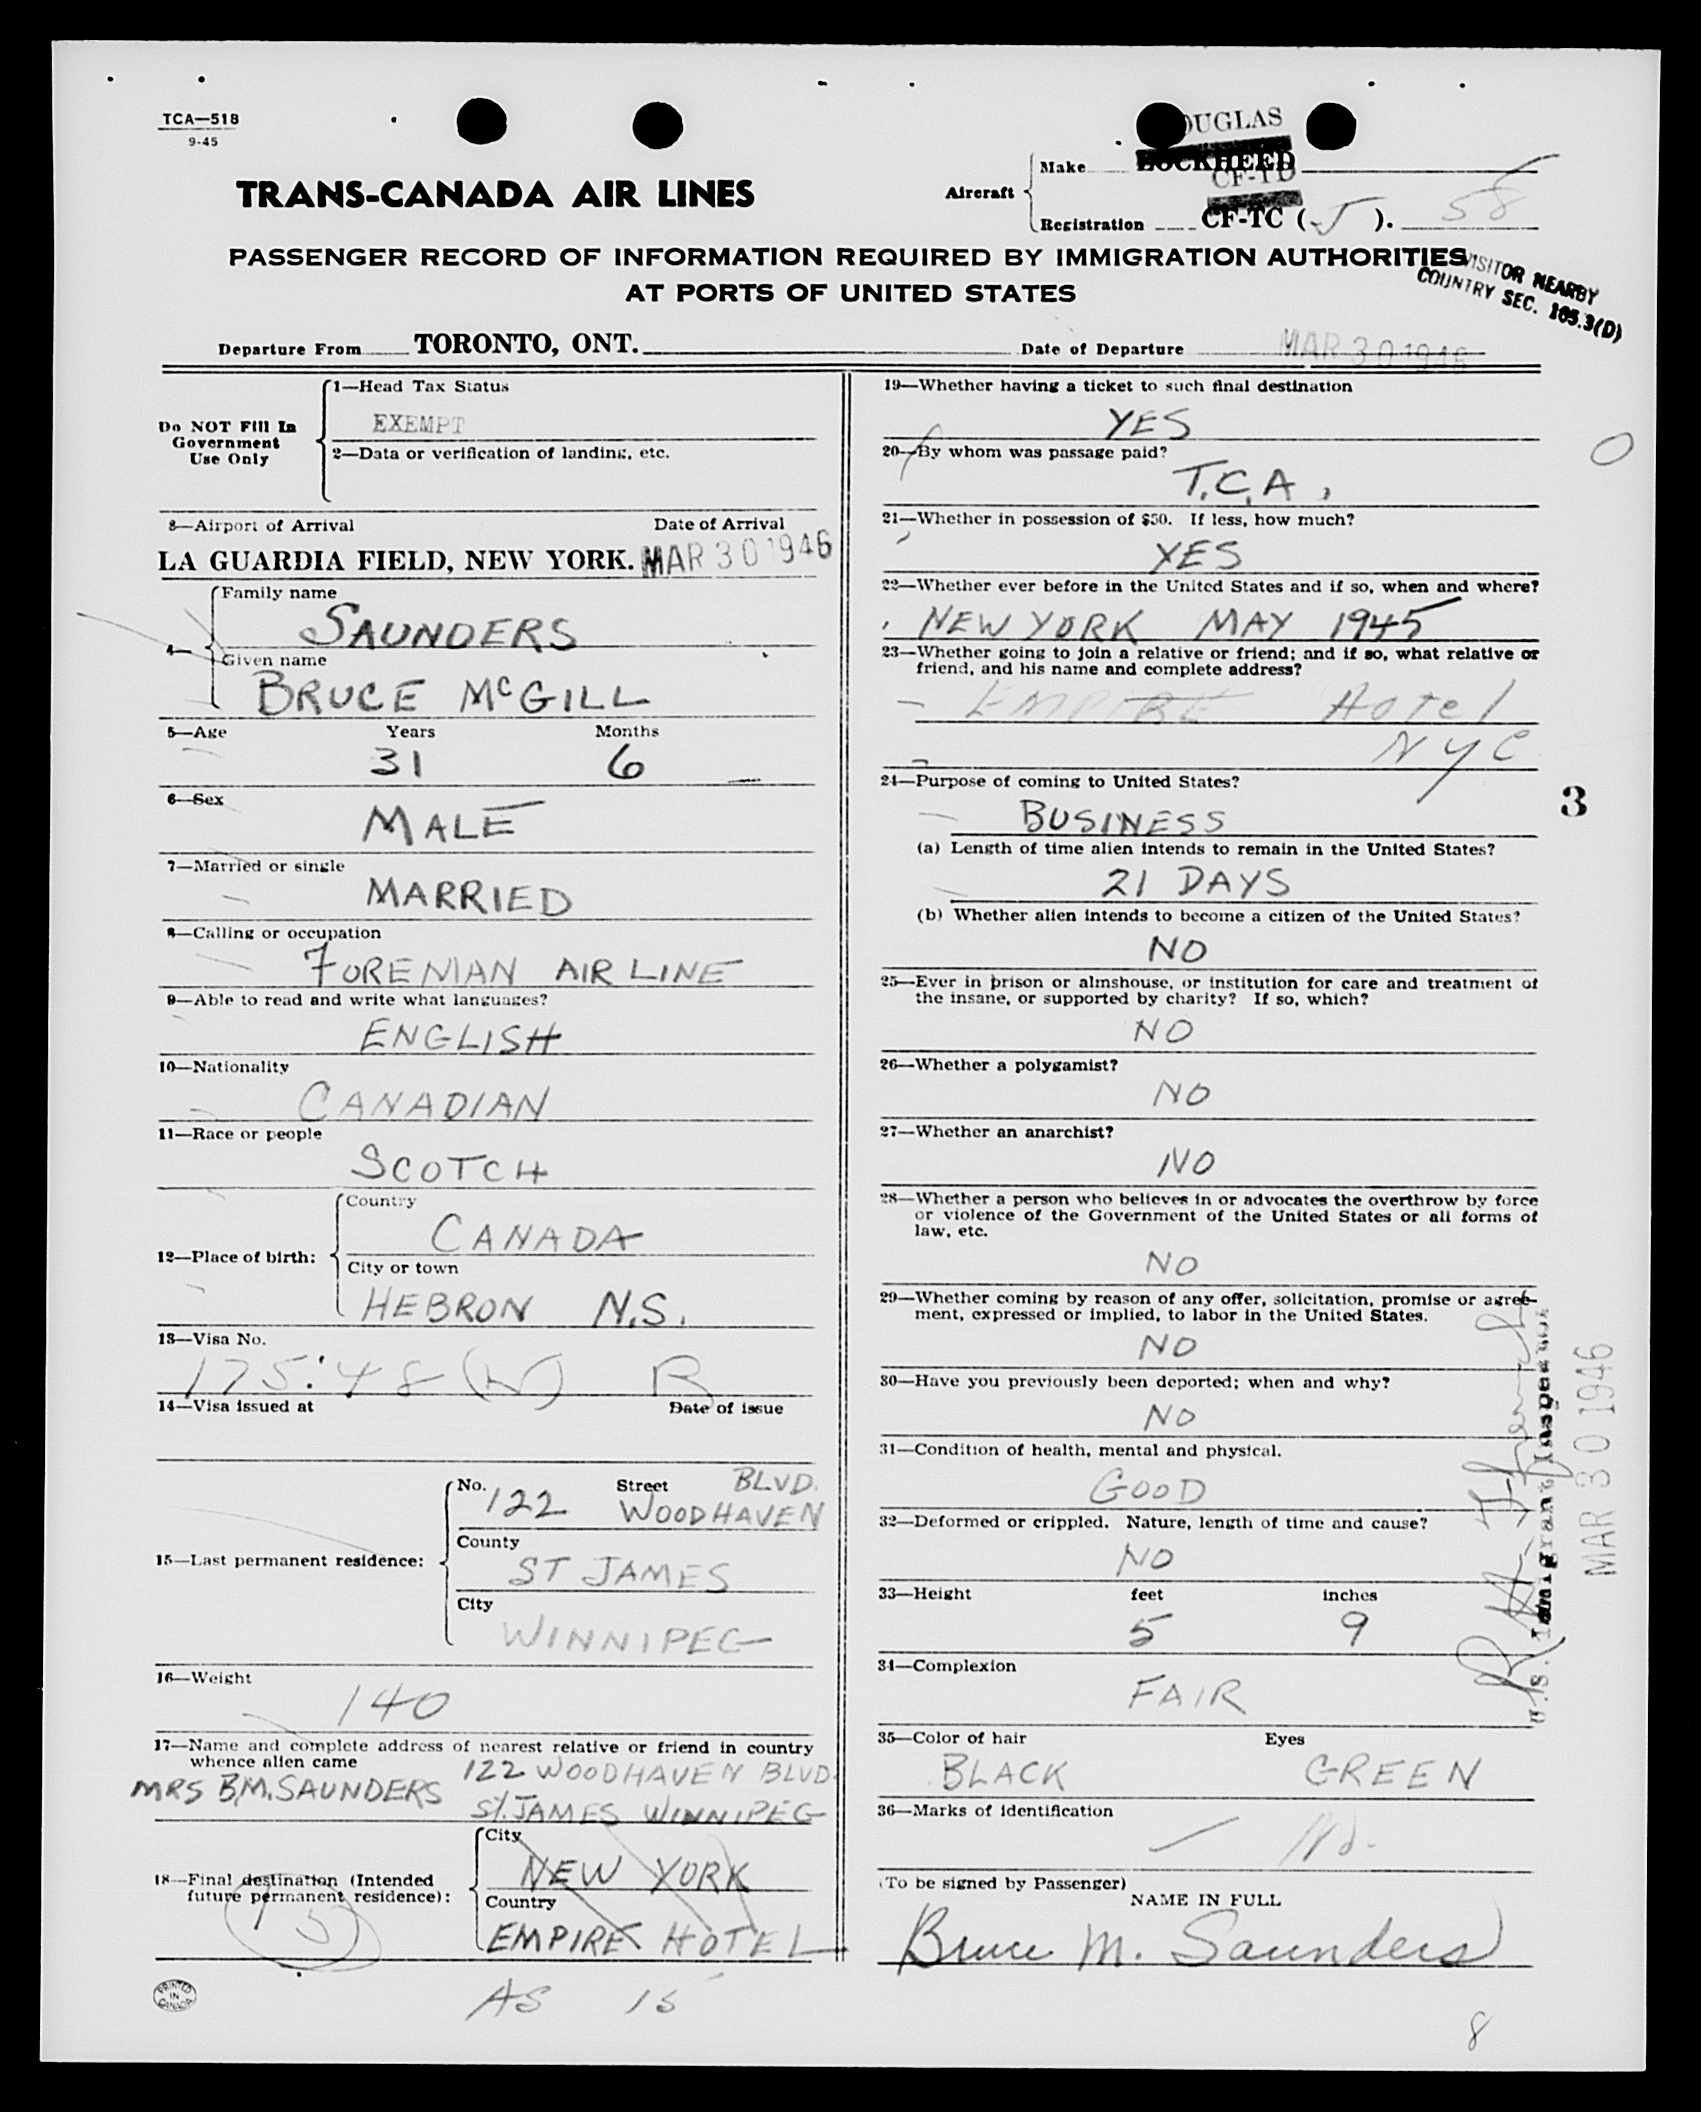 TCA—518
9-45
DOUGLAS
LOCKHEED
CF-TD
TRANS-CANADA AIR LINES
Aircraft
Make
Registration CF-TC ( J ). 58
PASSENGER RECORD OF INFORMATION REQUIRED BY IMMIGRATION AUTHORITIES
AT PORTS OF UNITED STATES
VISITOR NEARBY
COUNTRY SEC. 165.3(D)
Departure From TORONTO, ONT. Date of Departure MAR 30 1946
Do NOT Fill In
Government
Use Only
1—Head Tax Status
EXEMPT
2—Data or verification of landing, etc.
3—Airport of Arrival Date of Arrival
LA GUARDIA FIELD, NEW YORK. MAR 30 1946
4—
Family name
SAUNDERS
Given name
BRUCE McGILL
5—Age Years Months
31 6
6—Sex
MALE
7—Married or single
MARRIED
8—Calling or occupation
FOREMAN AIR LINE
9—Able to read and write what languages?
ENGLISH
10—Nationality
CANADIAN
11—Race or people
SCOTCH
12—Place of birth:
Country
CANADA
City or town
HEBRON N.S.
13—Visa No.
175:48 (W) B
14—Visa issued at Date of issue
15—Last permanent residence:
No. Street BLVD.
122 WOODHAVEN
County
ST JAMES
City
WINNIPEG
16—Weight
140
17—Name and complete address of nearest relative or friend in country
whence alien came
MRS B.M. SAUNDERS 122 WOODHAVEN BLVD.
ST. JAMES WINNIPEG
18—Final destination (Intended
future permanent residence):
City
NEW YORK
Country
EMPIRE HOTEL
15
PRINTED
IN
CANADA
AS 15
19—Whether having a ticket to such final destination
YES
20—By whom was passage paid?
T.C.A.
21—Whether in possession of $50. If less, how much?
YES
22—Whether ever before in the United States and if so, when and where?
NEW YORK MAY 1945
23—Whether going to join a relative or friend; and if so, what relative or
friend, and his name and complete address?
EMPIRE Hotel
NYC
24—Purpose of coming to United States?
BUSINESS
(a) Length of time alien intends to remain in the United States?
21 DAYS
(b) Whether alien intends to become a citizen of the United States?
NO
25—Ever in prison or almshouse, or institution for care and treatment of
the insane, or supported by charity? If so, which?
NO
26—Whether a polygamist?
NO
27—Whether an anarchist?
NO
28—Whether a person who believes in or advocates the overthrow by force
or violence of the Government of the United States or all forms of
law, etc.
NO
29—Whether coming by reason of any offer, solicitation, promise or agree-
ment, expressed or implied, to labor in the United States.
NO
30—Have you previously been deported; when and why?
NO
31—Condition of health, mental and physical.
GOOD
32—Deformed or crippled. Nature, length of time and cause?
NO
33—Height feet inches
5 9
34—Complexion
FAIR
35—Color of hair Eyes
BLACK GREEN
36—Marks of identification
(To be signed by Passenger)
NAME IN FULL
Bruce M. Saunders
3
U.S. Immigrant Inspector
MAR 30 1946
8